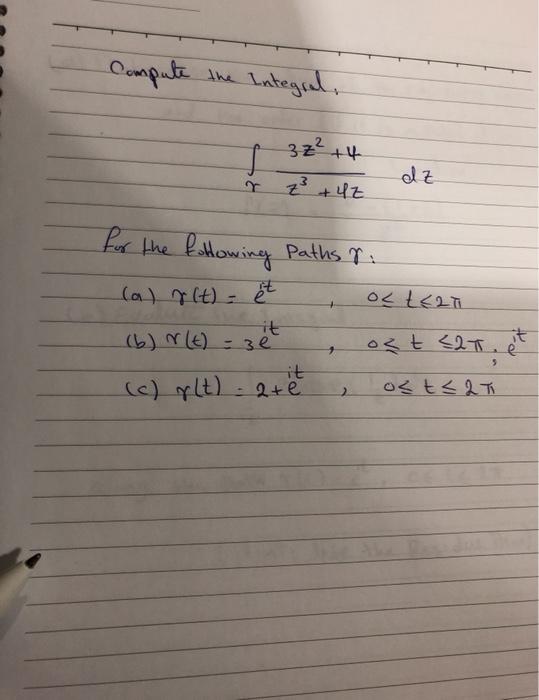 Compute the Integral,
∫γ (3z² + 4)/(z³ + 4z) dz
for the following Paths γ:
(a) γ(t) = e^it , 0 ≤ t ≤ 2π
(b) γ(t) = 3e^it , 0 ≤ t ≤ 2π, e^it
(c) γ(t) = 2 + e^it , 0 ≤ t ≤ 2π